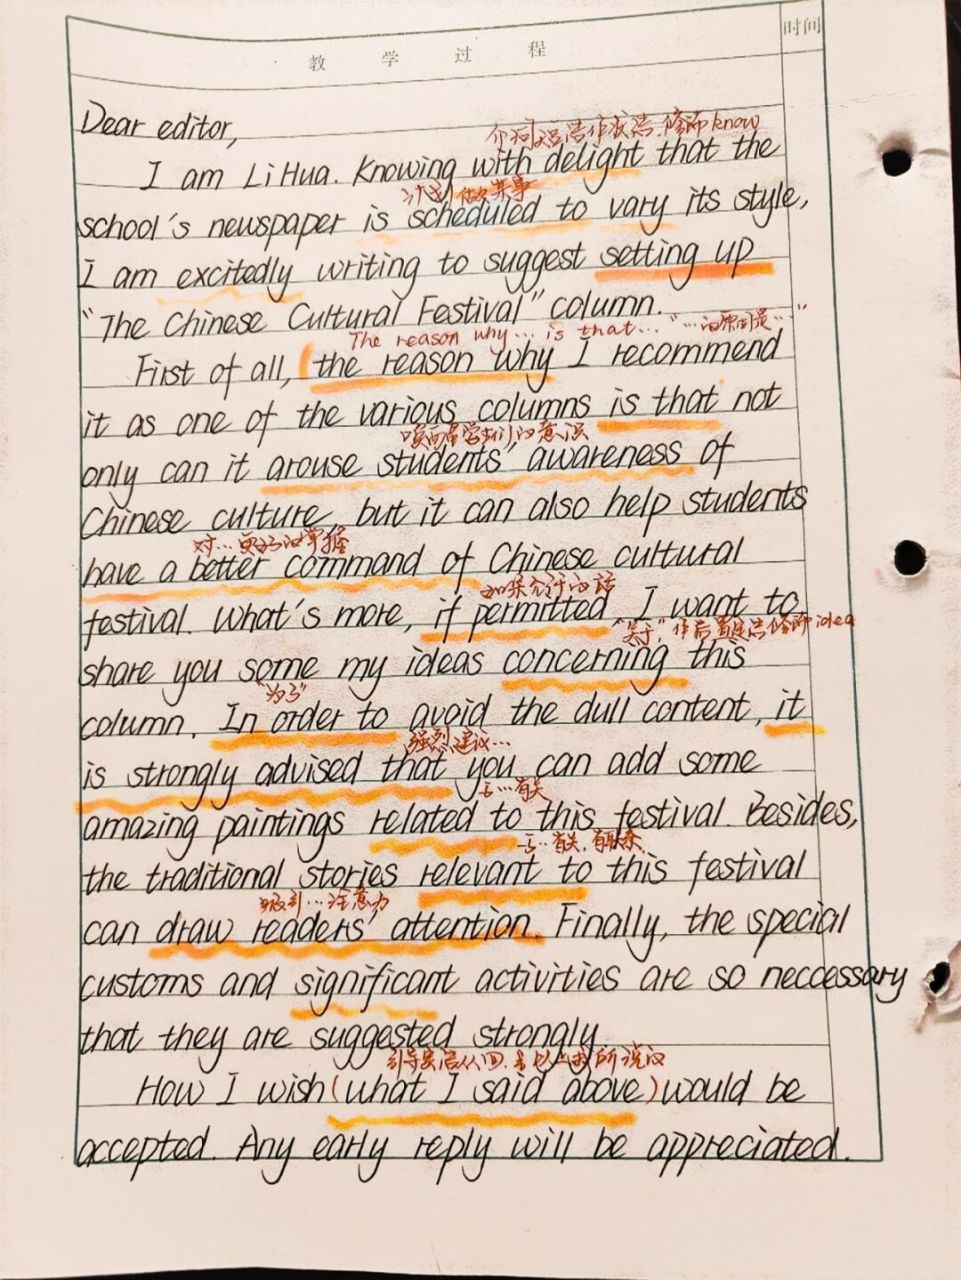 时间
教 学 过 程
Dear editor,
介词短语作状语,修饰know
I am Li Hua. Knowing with delight that the
计划做某事
school's newspaper is scheduled to vary its style,
I am excitedly writing to suggest setting up
"The Chinese Cultural Festival" column.
The reason why... is that... "...的原因是..."
First of all, (the reason why I recommend
it as one of the various columns is that not
唤醒学生们的意识
only can it arouse students' awareness of
Chinese culture, but it can also help students
对...更好的掌握
have a better command of Chinese cultural
如果允许的话
festival. What's more, if permitted, I want to
"关于",作后置定语修饰idea
share you some my ideas concerning this
"为了"
column. In order to avoid the dull content, it
强烈建议...
is strongly advised that you can add some
与...有关
amazing paintings related to this festival. Besides,
与...有关,有联系
the traditional stories relevant to this festival
吸引...注意力
can draw readers' attention. Finally, the special
customs and significant activities are so neccessary
that they are suggested strongly.
引导宾语从句,
How I wish (what I said above) would be
accepted. Any early reply will be appreciated.